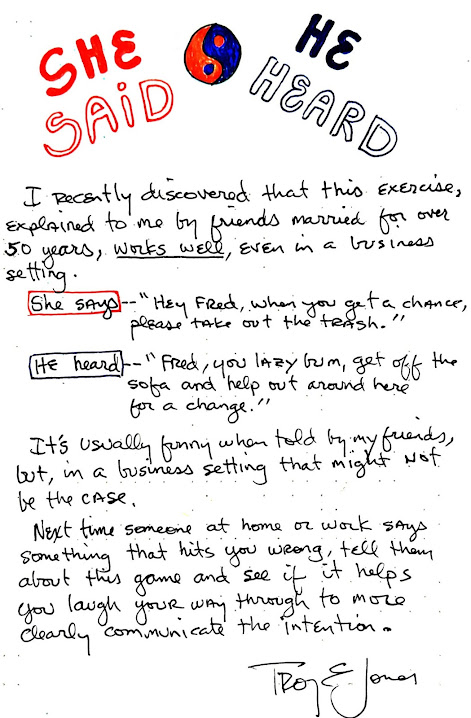 SHE SAiD
HE HEARD
I Recently discovered that this exercise,
explained to me by friends married for over
50 years, works well, even in a business
setting.
She says--"Hey Fred, when you get a chance,
please take out the trash."
He heard--"Fred, you lazy bum, get off the
sofa and help out around here
for a change."
It's usually funny when told by my friends,
but, in a business setting that might not
be the case.
Next time someone at home or work says
something that hits you wrong, tell them
about this game and see if it helps
you laugh your way through to more
clearly communicate the intention.
Troy E Jones